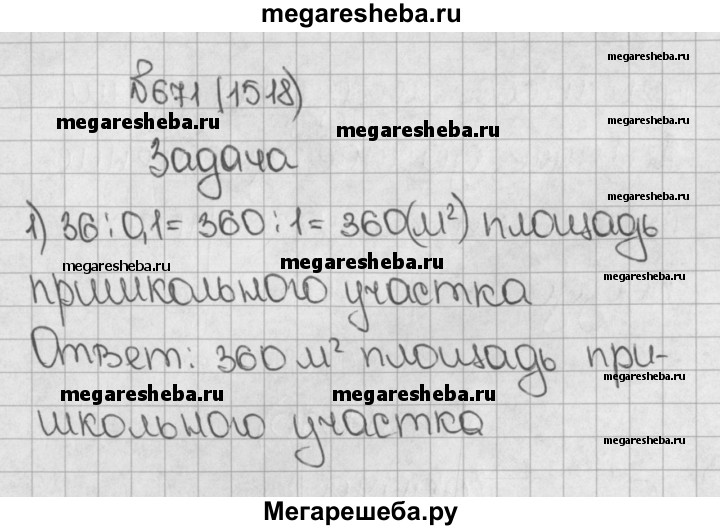 megaresheba.ru
megaresheba.ru
№671 (1518)
megaresheba.ru
megaresheba.ru
Задача
megaresheba.ru
1) 36:0,1=360:1=360(м²) площадь
megaresheba.ru
megaresheba.ru
megaresheba.ru
пришкольного участка
Ответ: 360 м² площадь при-
megaresheba.ru
megaresheba.ru
megaresheba.ru
школьного участка
megaresheba.ru
Мегарешеба.ру